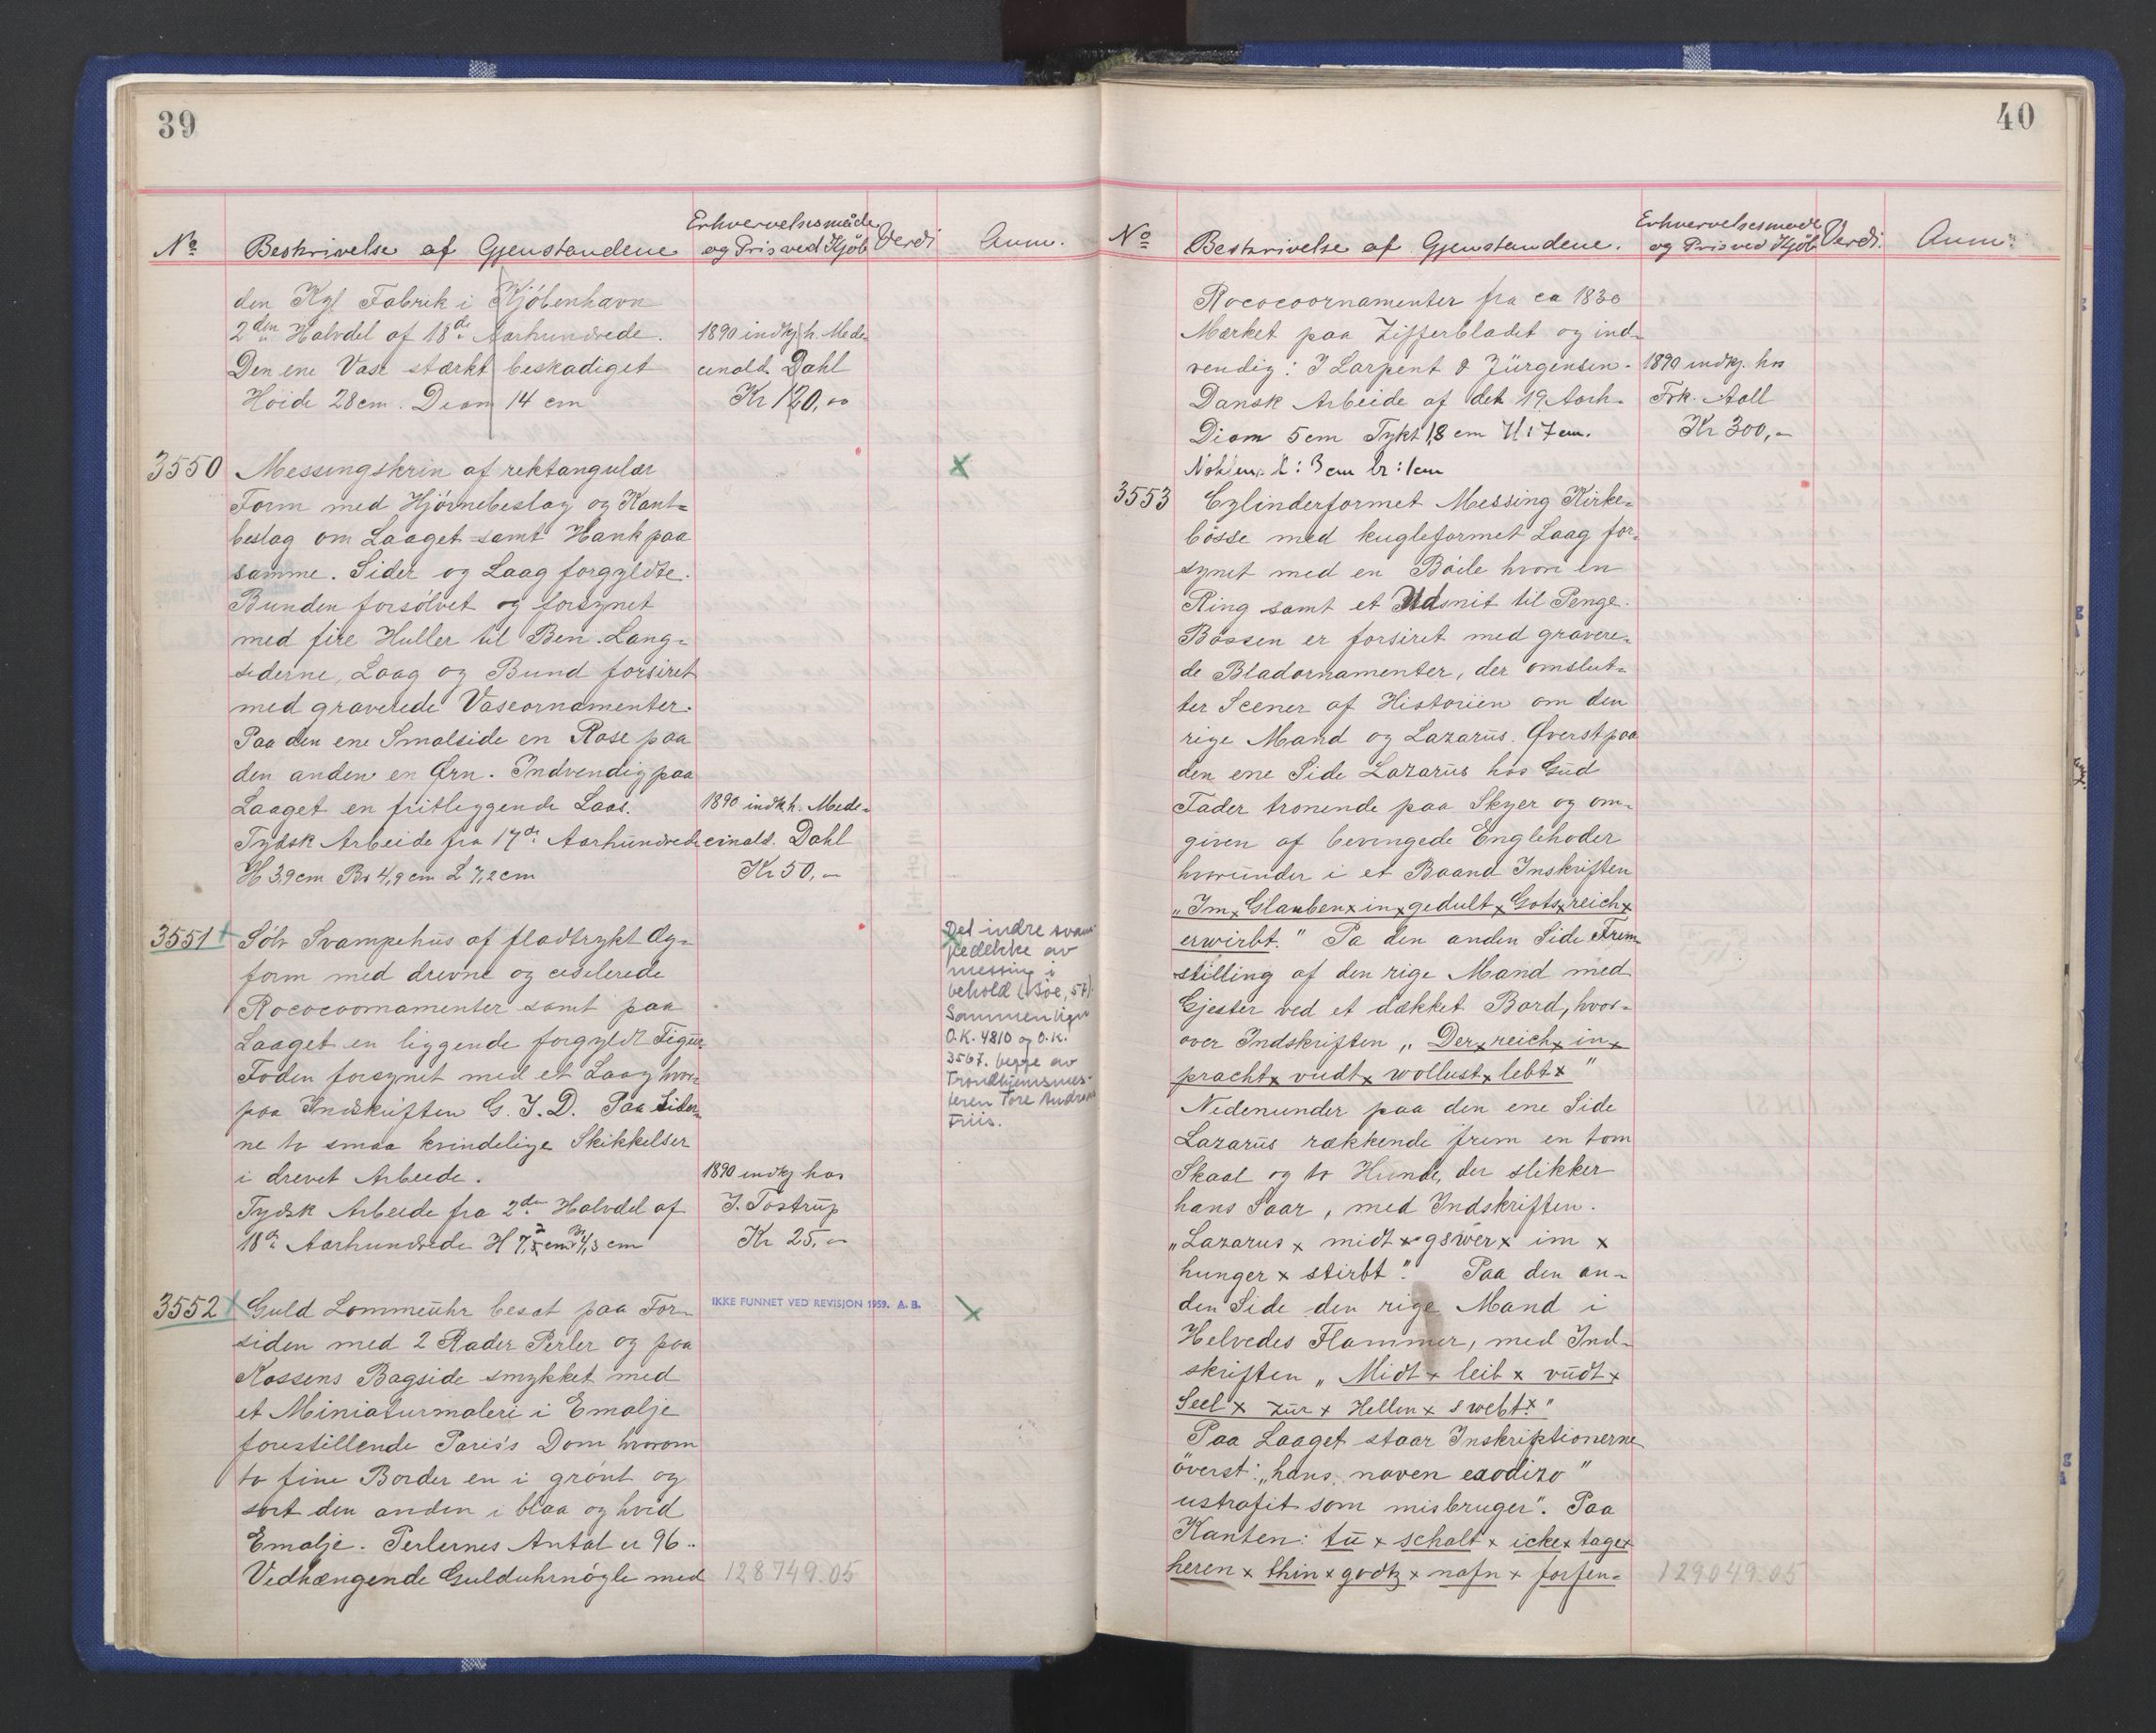 39
No Beskrivelse af Gjenstandene Erhvervelsesmåde og Pris ved Kjöb Verdi Anm.
den Kgl Fabrik i Kjöbenhavn
2den Halvdel af 18de Aarhundrede. 1890 indkj. h. Mede-
Den ene Vase stærkt beskadiget cinald. Dahl
Höide 28 cm. Diam 14 cm Kr 120,00
3550 Messingskrin af rektangulær
Form med Hjörnebeslag og Kant=
beslag om Laaget samt Hank paa
samme. Sider og Laag forgyldte.
Bunden forsölvet og forsynet
med fire Huller til Ben. Lang=
siderne, Laag og Bund forsiret
med graverede Vaseornamenter.
Paa den ene Smalside en Rose paa
den anden en Ørn. Indvendig paa
Laaget en fritliggende Laas. 1890 indk h. Mede-
Tydsk Arbeide fra 17de Aarhundrede cinald. Dahl
H 3,9 cm Br 4,9 cm L 7,2 cm Kr 50,-
3551 Sölv Svampehus af fladtrykt Æg=
form med drevne og ciselerede
Rococoornamenter samt paa
Laaget en liggende forgyldt Figur.
Foden forsynet med et Laag hvor=
paa Indskriften G. J. D. Paa Sider=
ne to smaa kvindelige Skikkelser
i drevet Arbeide. 1890 indkj hos
Tydsk Arbeide fra 2den Halvdel af J. Tostrup
18de Aarhundrede H 7,5 cm Br 4,3 cm Kr 25,-
Det indre svam-
pedekke av
messing i
behold
Sammenlign
O.K. 4810 og O.K.
3567. begge av
Trondhjemsmes-
teren Tore Andreas
Friis.
3552 Guld Lommeuhr besat paa For= IKKE FUNNET VED REVISJON 1959. A. B.
siden med 2 Rader Perler og paa
Kassens Bagside smykket med
et Miniaturmaleri i Emalje
forestillende Paris's Dom hvorom
to fine Border en i grönt og
sort den anden i blaa og hvid
Emalje. Perlernes Antal er 96.
Vedhængende Gulduhrnögle med 128749.05
40
No Beskrivelse af Gjenstandene. Erhvervelsesmåde og Pris ved Kjöb Verdi. Anm.
Rococoornamenter fra ca 1830
Mærket paa Zifferbladet og ind=
vendig: I Larpent & Jürgensen. 1890 indkj. hos
Dansk Arbeide af det 19 Aarh. Frk. Aall
Diam 5 cm Tykt 1,8 cm H: 7 cm. Kr 300,-
Nöklen: l: 3 cm br: 1 cm
3553 Cylinderformet Messing Kirke=
bösse med kugleformet Laag for=
synet med en Böile hvori en
Ring samt et Udsnit til Penge.
Bössen er forsiret med gravere=
de Bladornamenter, der omslut=
ter Scener af Historien om den
rige Mand og Lazarus. Øverst paa
den ene Side Lazarus hos Gud
Fader tronende paa Skyer og om=
given af bevingede Englehoder
hvorunder i et Baand Inskriften
„Im x Glauben x in x gedult x Gots x reich x
erwirbt." Pa den anden Side Frem=
stilling af den rige Mand med
Gjester ved et dækket Bord, hvor=
over Indskriften „Der x reich x in x
pracht x vudt x wollust x lebt x"
Nedenunder paa den ene Side
Lazarus rækkende frem en tom
Skaal og to Hunde, der slikker
hans Saar, med Indskriften.
„Lazarus x midt x gswer x im x
hunger x stirbt". Paa den an=
den Side den rige Mand i
Helvedes Flammer, med Ind=
skriften „Midt x leib x vudt x
Seel x zur x Hellen x swebt x"
Paa Laaget staar Inskriptionerne
överst: „hans naven exodizo"
ustrafit som misbruger". Paa
Kanten: tu x schalt x icke x tage x
heren x thin x godtz x nafn x forfen= 129049.05